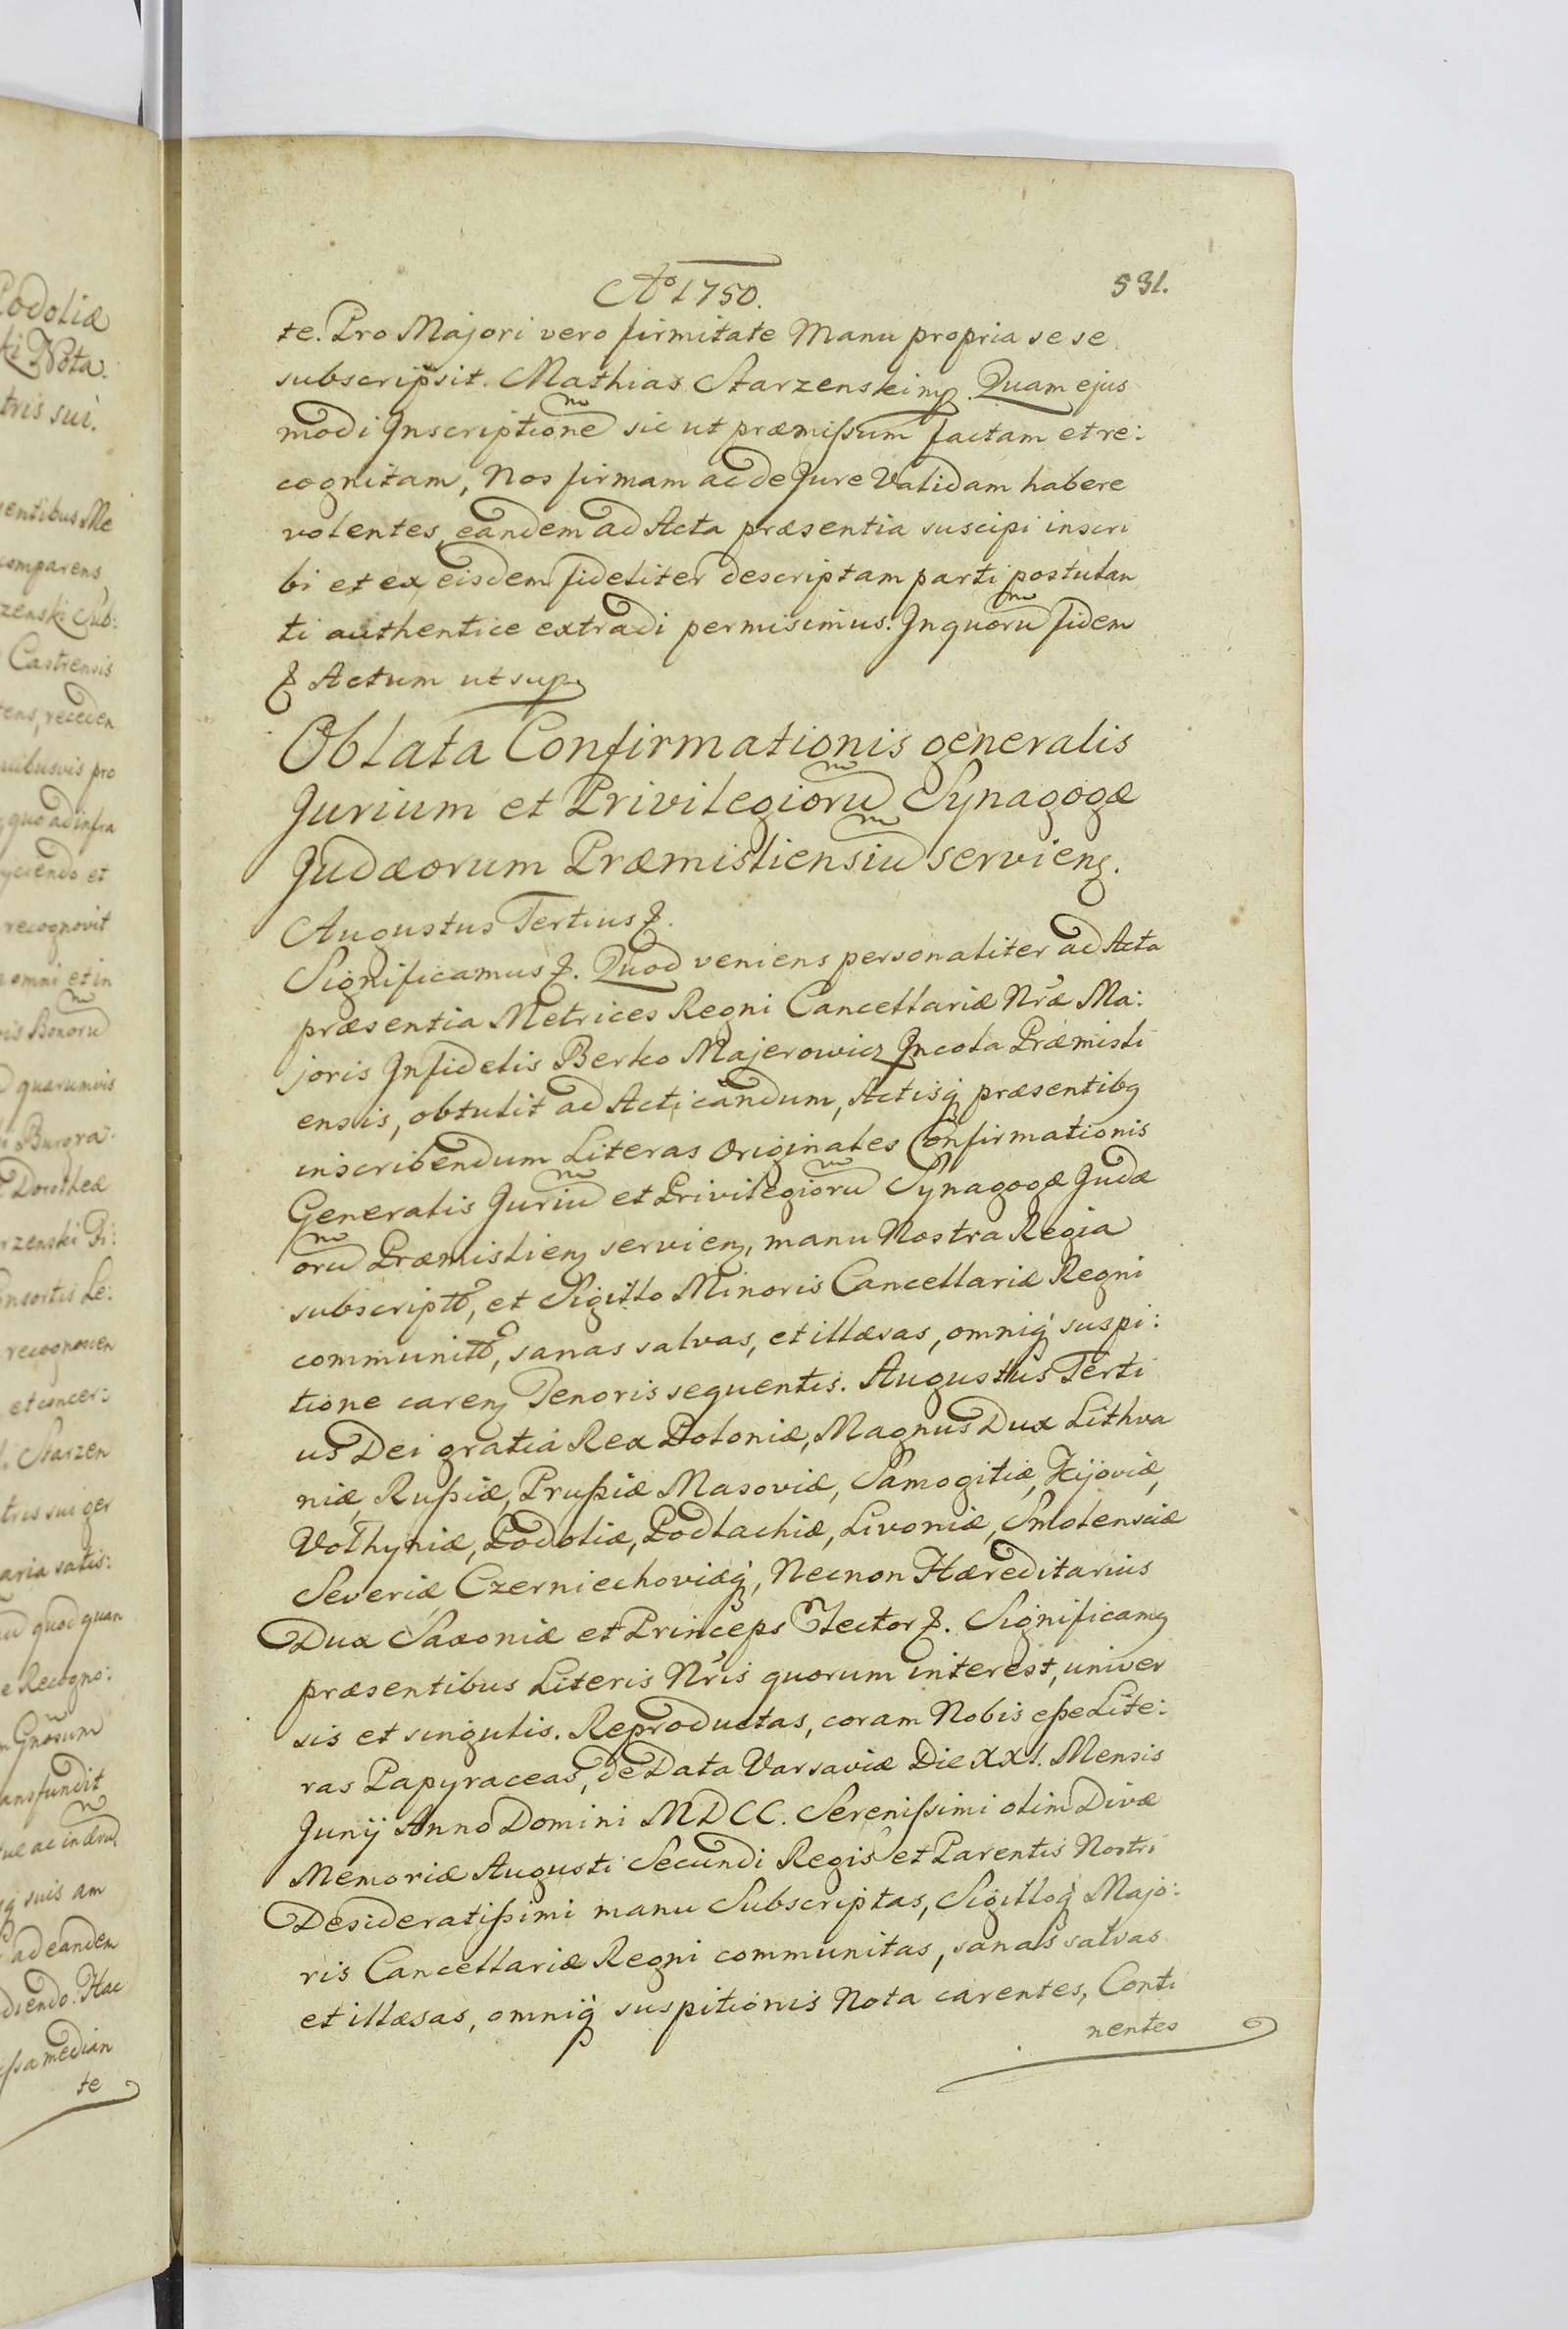 Podoliæ
ki Nota.
tris sui.
entibus Me
comparens
zenski Sub:
Castrensis
tens, receden
uibusvis pro
quo ad infra
yciendo et
recognovit
omni et in
is Bonorū
quarumvis
Burgra:
Dorotheæ
rzenski Fi:
onsortis Le:
recognoven
et concer:
Starzen
tris sui ger
aria satis:
quod quan
e Recogno:
Gnosum
ansfundit
ue ac in
suis am
ad eandem
diendo. Hac
issa median
te
Aº 1750.
531.
te. Pro Majori vero firmitate Manu propria se se
subscripsit. Mathias Starzenski mp. Quam ejus
modi Inscriptionē sic ut præmissum factam et re:
cognitam, Nos firmam ac de Jure Validam habere
volentes, eandem ad Acta præsentia suscipi inscri
bi et ex eisdem fideliter descriptam parti postulan
ti authentice extradi permisimus. In quorū fidem
& Actum ut sup.
Oblata Confirmationis generalis
Jurium et Privilegiorū Synagogæ
Judæorum Præmisliensiū servienꝫ.
Augustus Tertius &.
Significamus &. Quod veniens personaliter ad Acta
præsentia Metrices Regni Cancellariæ Nræ Ma:
joris Infidelis Berko Majerowicz Incola Præmisli
ensis, obtulit ad Acticandum, Actisq́ præsentibꝫ
inscribendum Literas Originales Confirmationis
Generalis Juriū et Privilegiorū Synagogæ Judæ
orū Præmislienꝫ servienꝫ, manu Nostra Regia
subscriptas, et Sigillo Minoris Cancellariæ Regni
communitas, sanas salvas, et illæsas, omniq́ suspi:
tione carenꝫ Tenoris sequentis. Augustus Terti
us Dei gratia Rex Poloniæ, Magnus Dux Lithva
niæ, Russiæ, Prussiæ Masoviæ, Samogitiæ, Kijoviæ,
Volhyniæ, Podoliæ, Podlachiæ, Livoniæ, Smolensciæ
Severiæ Czerniechoviæq́, Necnon Hæreditarius
Dux Saxoniæ et Princeps Elector &. Significamꝫ
præsentibus Literis Nris quorum interest, univer
sis et singulis. Reproductas, coram Nobis esse Lite:
ras Papyraceas, de Data Varsaviæ Die XXI. Mensis
Junij Anno Domini MDCC. Serenissimi olim Divæ
Memoriæ Augusti Secundi Regis et Parentis Nostri
Desideratissimi manu Subscriptas, Sigilloq́ Majo:
ris Cancellariæ Regni communitas, sanas salvas
et illæsas, omniq́ suspitionis Nota carentes, Conti
nentes